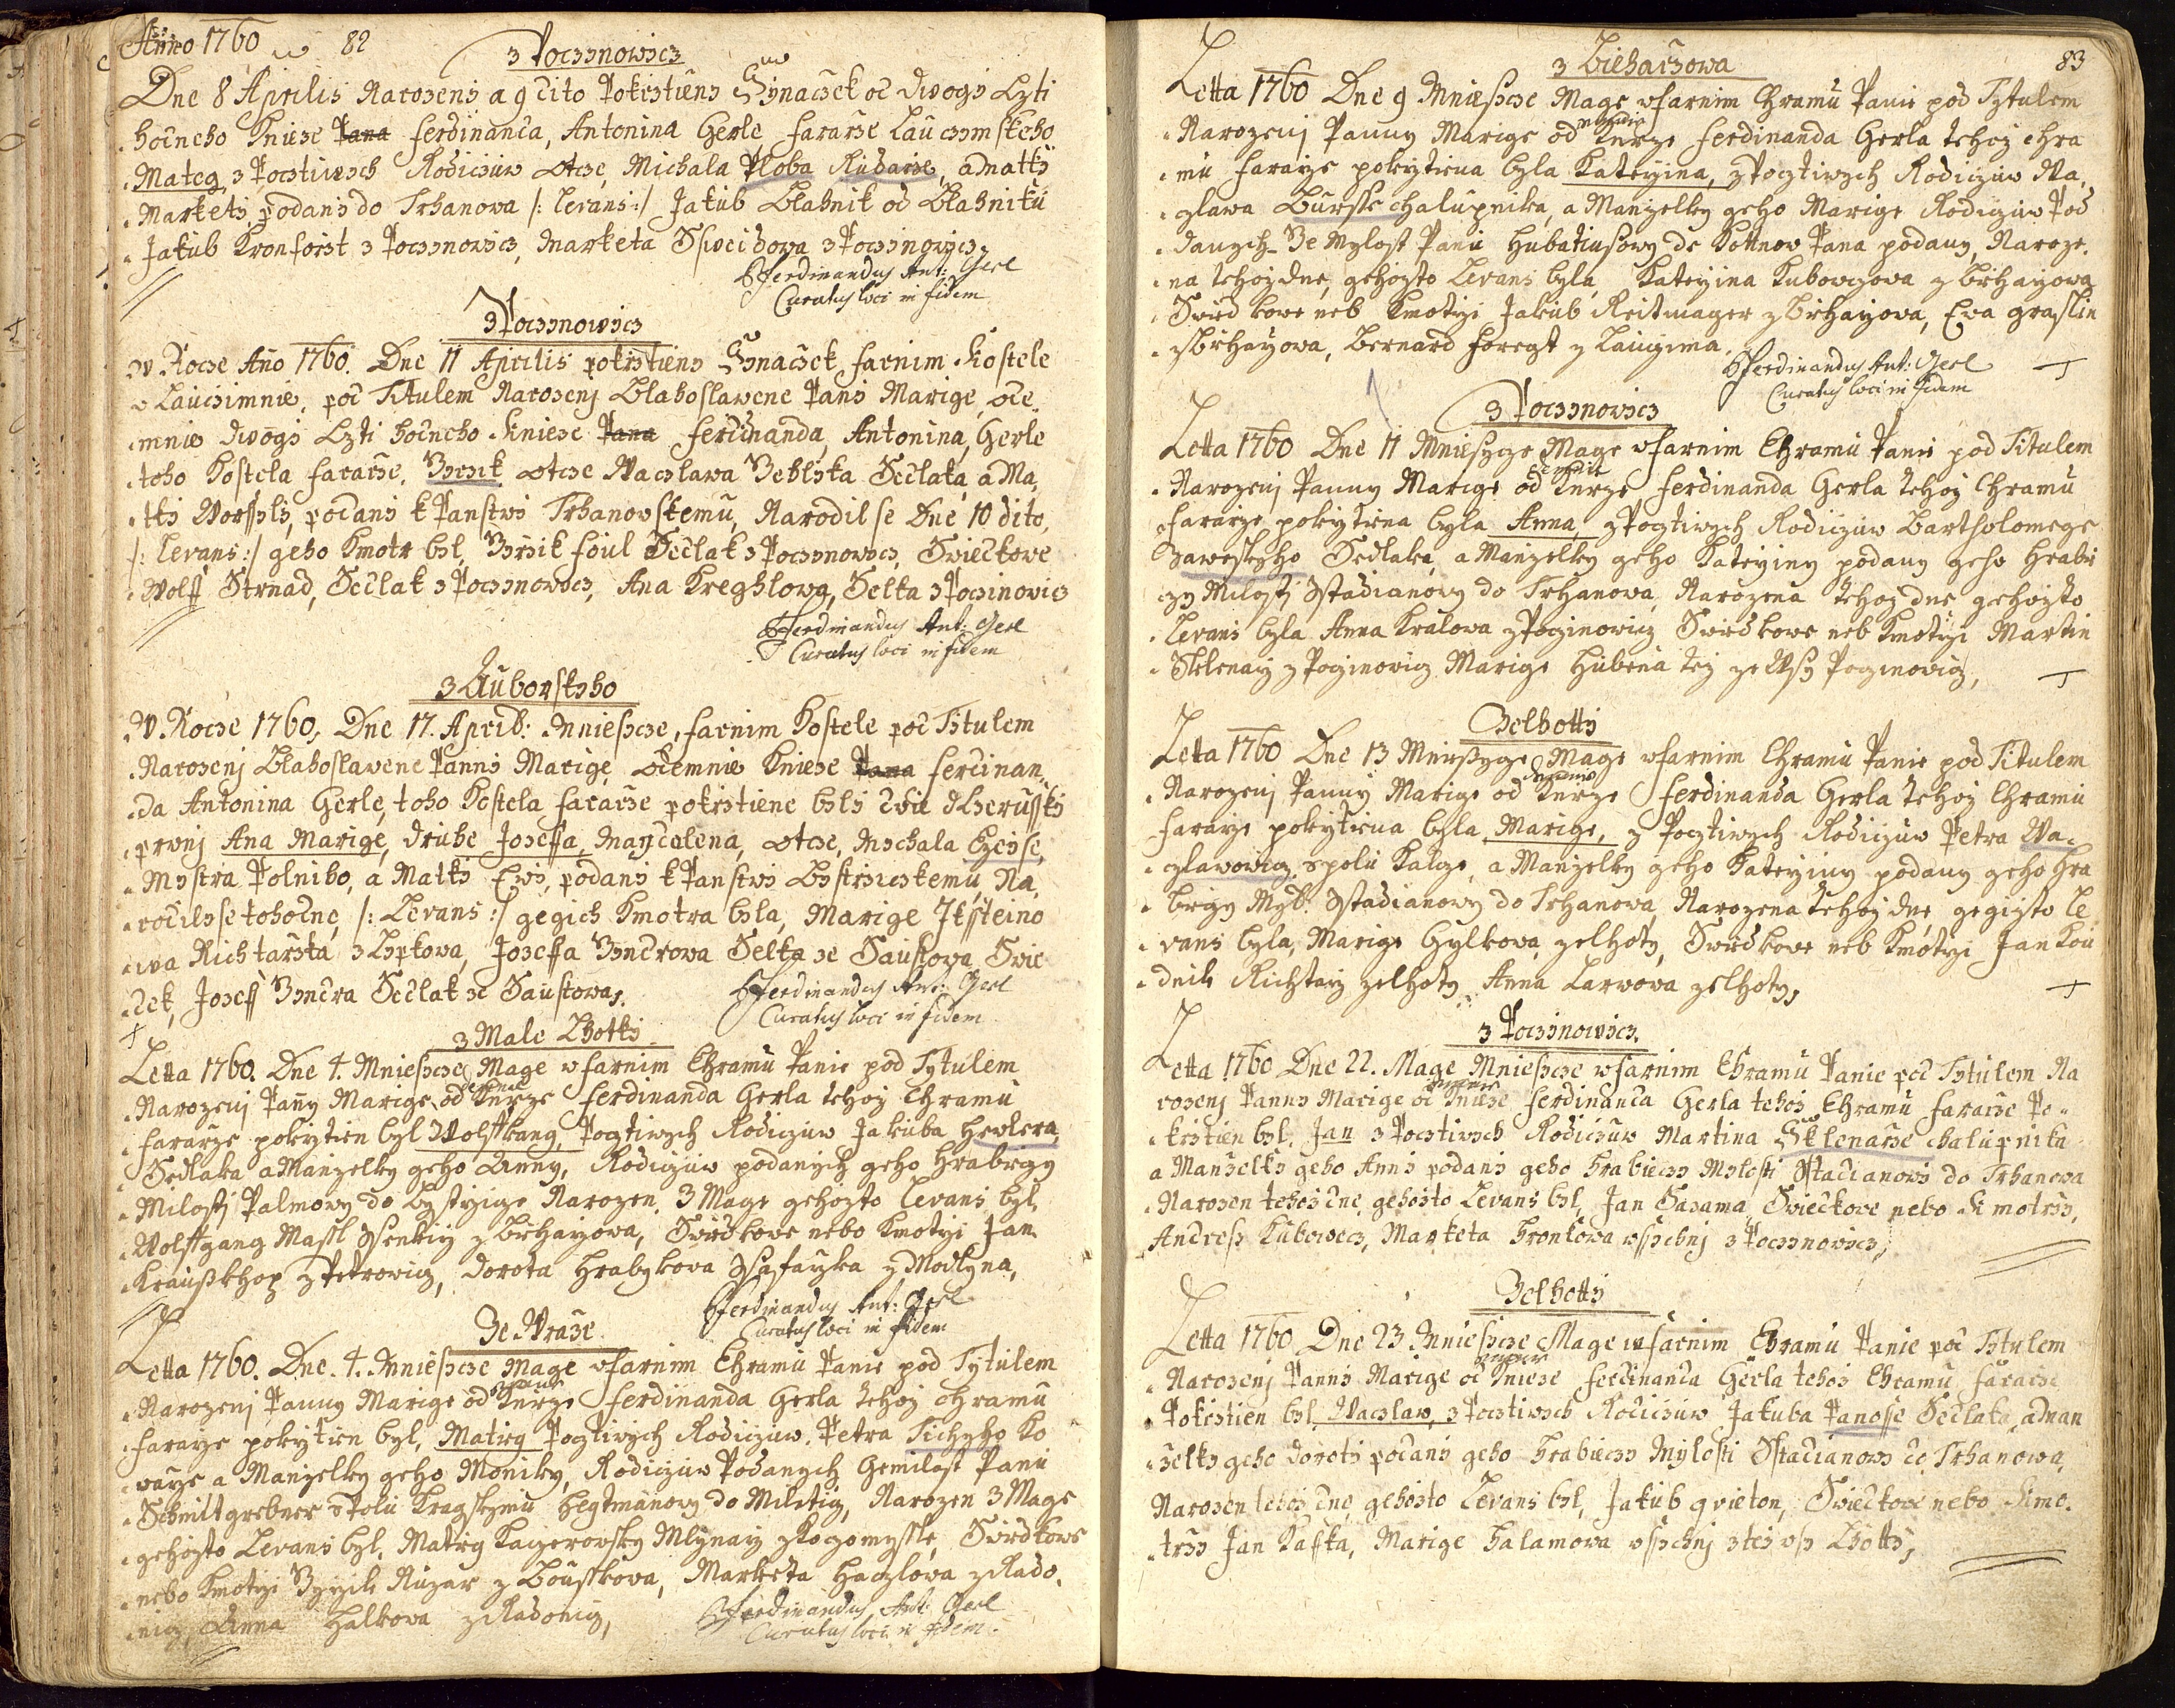 Anno 1760
82
z Poczynowicz
Dne 8 Aprilis Narozeny a 9 dito Pokrztieny Synaczek od dwogi Czti
hodneho Knieze Pana Ferdinanda, Antonina Gerle Fararze Lauczimskeho
Mateg z Pocztiwych Rodiczuw Otcze, Michala Ploba Rudarze, a Matky
Markety, podany do Trhanowa /: Levans :/ Jakub Blahnik od Blahniku
Jakub Kronforst z Poczynowicz, Marketa Sweidova z Poczinowicz,
Ferdinandus Ant: Gerl
Curatus loci in fidem
z Poczynowicz
W Rocze Año 1760. Dne 11 Aprilis pokrztieny Synaczek Farnim Kostele
w Lauczimnie, pod Titulem Narozenj Blahoslawene Pany Marige, ode
mnie dwogi Czti hodneho Knieze Pana Ferdinanda, Antonina, Gerle
toho Kostela Fararze. Irzik Otcze Waczlawa Sedlaka, a Ma
tky Worssyly, podany k Panstwi Trhanowskemu, Narodil se Dne 10 dito,
/: Levans :/ geho Kmotr byl, Sedlak z Poczynowicz, Swiedkowe
Wolff Strnad, Sedlak z Poczynowicz, Ana Kreghlowa, Selka z Poczinowicz
Ferdinandus Ant: Gerl
Curatus loci in fidem
z Auborskyho
W Rocze 1760, Dne 17. April: Mniesycze, Farnim Kostele pod Titulem
Narozenj Blahoslawene Panny Marige, odemnie Knieze Pana Ferdinan
da Antonina Gerle, toho Kostela Fararze pokrztiene byly dwie dczerussky
prwnj Ana Marige, druhe Joseffa, Magdalena, Otcze, Mychala
Mystra Polniho, a Matky Ewy, podany k Panstwi Bystrzickemu, Na
rodily se tohodne, /: Levans :/ gegich Kmotra byla, Marige
wa Richtarzka z Loptowa, Joseffa Selka ze Saustowa, Swie
dek, Joseff Sedlak ze Saustowa,
Ferdinandus Ant: Gerl
Curatus loci in fidem
z Male Lhotky
Letta 1760. Dne 4. Mniesycze Mage w Farnim Chramu Panie pod Tytulem
Narozenj Pañy Marige, od Knieze Ferdinanda Gerla tehoz Chramu
Fararze pokrztien byl Wolffkang, Pocztiwych Rodiczuw Jakuba Hewlera,
Sedlaka a Manzelky geho Anny, Rodiczuw podanych geho Hrabiczy
Milosti Palmowy do Bystrzige Narozen. 3 Mage gehozto Levans byl
Wolffgang Massl Ssenkirz z Brhazowa, Swiedkowe nebo Kmotrzi Jan
z Petrowicz, Dorota Hrabykowa Ssafarzka z Modlyna,
Ferdinandus Ant: Gerl
Curatus loci in fidem
Ze Wraze
Letta 1760. Dne. 4. Mniesycze Mage w Farnim Chramu Panie pod Tytulem
Narozenj Panny Marige od Knieze Ferdinanda Gerla tehoz Chramu
Fararze pokrztien byl, Mateg Pocztiwych Rodiczuw, Petra Tichyho Ko
warze a Manzelky geho Moniky, Rodiczuw Podanych Gemilost Panu
Schmittgrebner Hegtmanowy do Militicz, Narozen 3 Mage
gehozto Levans byl, Mateg Kagerowsky Mlynarz z Kogomyssle, Swiedkowe
nebo Kmotrzi Irzik Ruzar z Bousskowa, Marketa Haczlowa z Rado
nicz, Anna Halkowa z Radonicz,
Ferdinandus Ant: Gerl
Curatus loci in fidem.
83
z Biehaczowa
Letta 1760 Dne 9 Mniesycze Mage w Farnim Chramu Panie pod Tytulem
Narozenj Panny Marige od Knieze Ferdinanda Gerla tehoz Chra
mu Fararze pokrztiena byla Katerzina, z Pocztiwych Rodiczuw Wa
czlawa Bursse Chalupnika, a Manzelky geho Marige Rodiczuw Pod
danych Ge Mylost Panu Hubatiusowy de Kottnow Pana podany, Naroze
na tehoz dne, gehozto Levans byla, Katerzina Kubowcowa z Brhazowa
Swiedkowe neb Kmotrzi Jakub Reitmager z Brhazowa, Eva Graslin
z Brhazowa, Bernard Foregt z Lauzima.
Ferdinandus Ant: Gerl
Curatus loci in fidem
z Poczynowicz
Letta 1760 Dne 11 Mniesycze Mage w Farnim Chramu Panie pod Titulem
Narozenj Panny Marige od Knieze Ferdinanda Gerla tehoz Chramu
Fararze pokrztiena byla Anna, z Pocztiwych Rodiczuw Bartholomege
Zaweskyho Sedlaka, a Manzelky geho Katerziny podany geho Hrabi
czy Milosti Sstadianowy do Trhanowa, Narozena tehoz dne gehozto
Levans byla Anna Kralowa z Poczinowicz Swiedkowe neb Kmotrzi Martin
Sklenarz z Poczinowicz Marige Hubena tez ze Wsy Poczinowicz,
Ze Lhotty
Letta 1760 Dne 13 Mniesycze Mage w Farnim Chramu Panie pod Titulem
Narozenj Panny Marige od Knieze Ferdinanda Gerla tehoz Chramu
Fararze pokrztiena byla Marige, z Pocztiwych Rodiczuw Petra Wa
czlawowicz, spolu Kalcze, a Manzelky geho Katerziny podany geho Hra
biczy Myl: Sstadianowy do Trhanowa, Narozena tehoz dne, gegizto Le
vans byla, Marige Hylkowa, ze Lhoty, Swiedkowe neb Kmotrzi Jan Kou
dnik Richtarz ze Lhoty Anna Larwowa ze Lhoty,
z Poczynowicz.
Letta 1760 Dne 22. Mage Mniesycze w Farnim Chramu Panie pod Tytulem Na
rozenj Panny Marige od Knieze Ferdinanda Gerla tehoz Chramu Fararze Po
krztien byl, Jan z Pocztiwych Rodiczuw Martina Sklenarze chalupnika
a Manzelky geho Anny podany geho Hrabieczy Mylosti Sstadianowy do Trhanowa
Narozen tehoz dne, gehozto Levans byl, Jan Sasama, Swiedkowe nebo Kmotrzy,
Andress Kubowecz, Marketa Kronlowa wssichnj z Poczynowicz,
Ze Lhotty
Letta 1760 Dne 23. Mniesycze Mage w Farnim Chramu Panie pod Tytulem
Narozenj Panny Marige od Knieze Ferdinanda Gerla tehoz Chramu Fararze
Pokrztien byl, Waczlaw, z Pocztiwych Rodiczuw Jakuba Panosse Sedlaka, a Man
zelky geho Doroty podany geho Hrabieczy Mylosti Sstadianowy do Trhanowa,
Narozen tehoz dne, gehozto Levans byl, Jakub Qvieton, Swiedkowe nebo Kmo
trzy Jan Kaffka, Marige Halamowa wssichnj z tez wsy Lhotty,